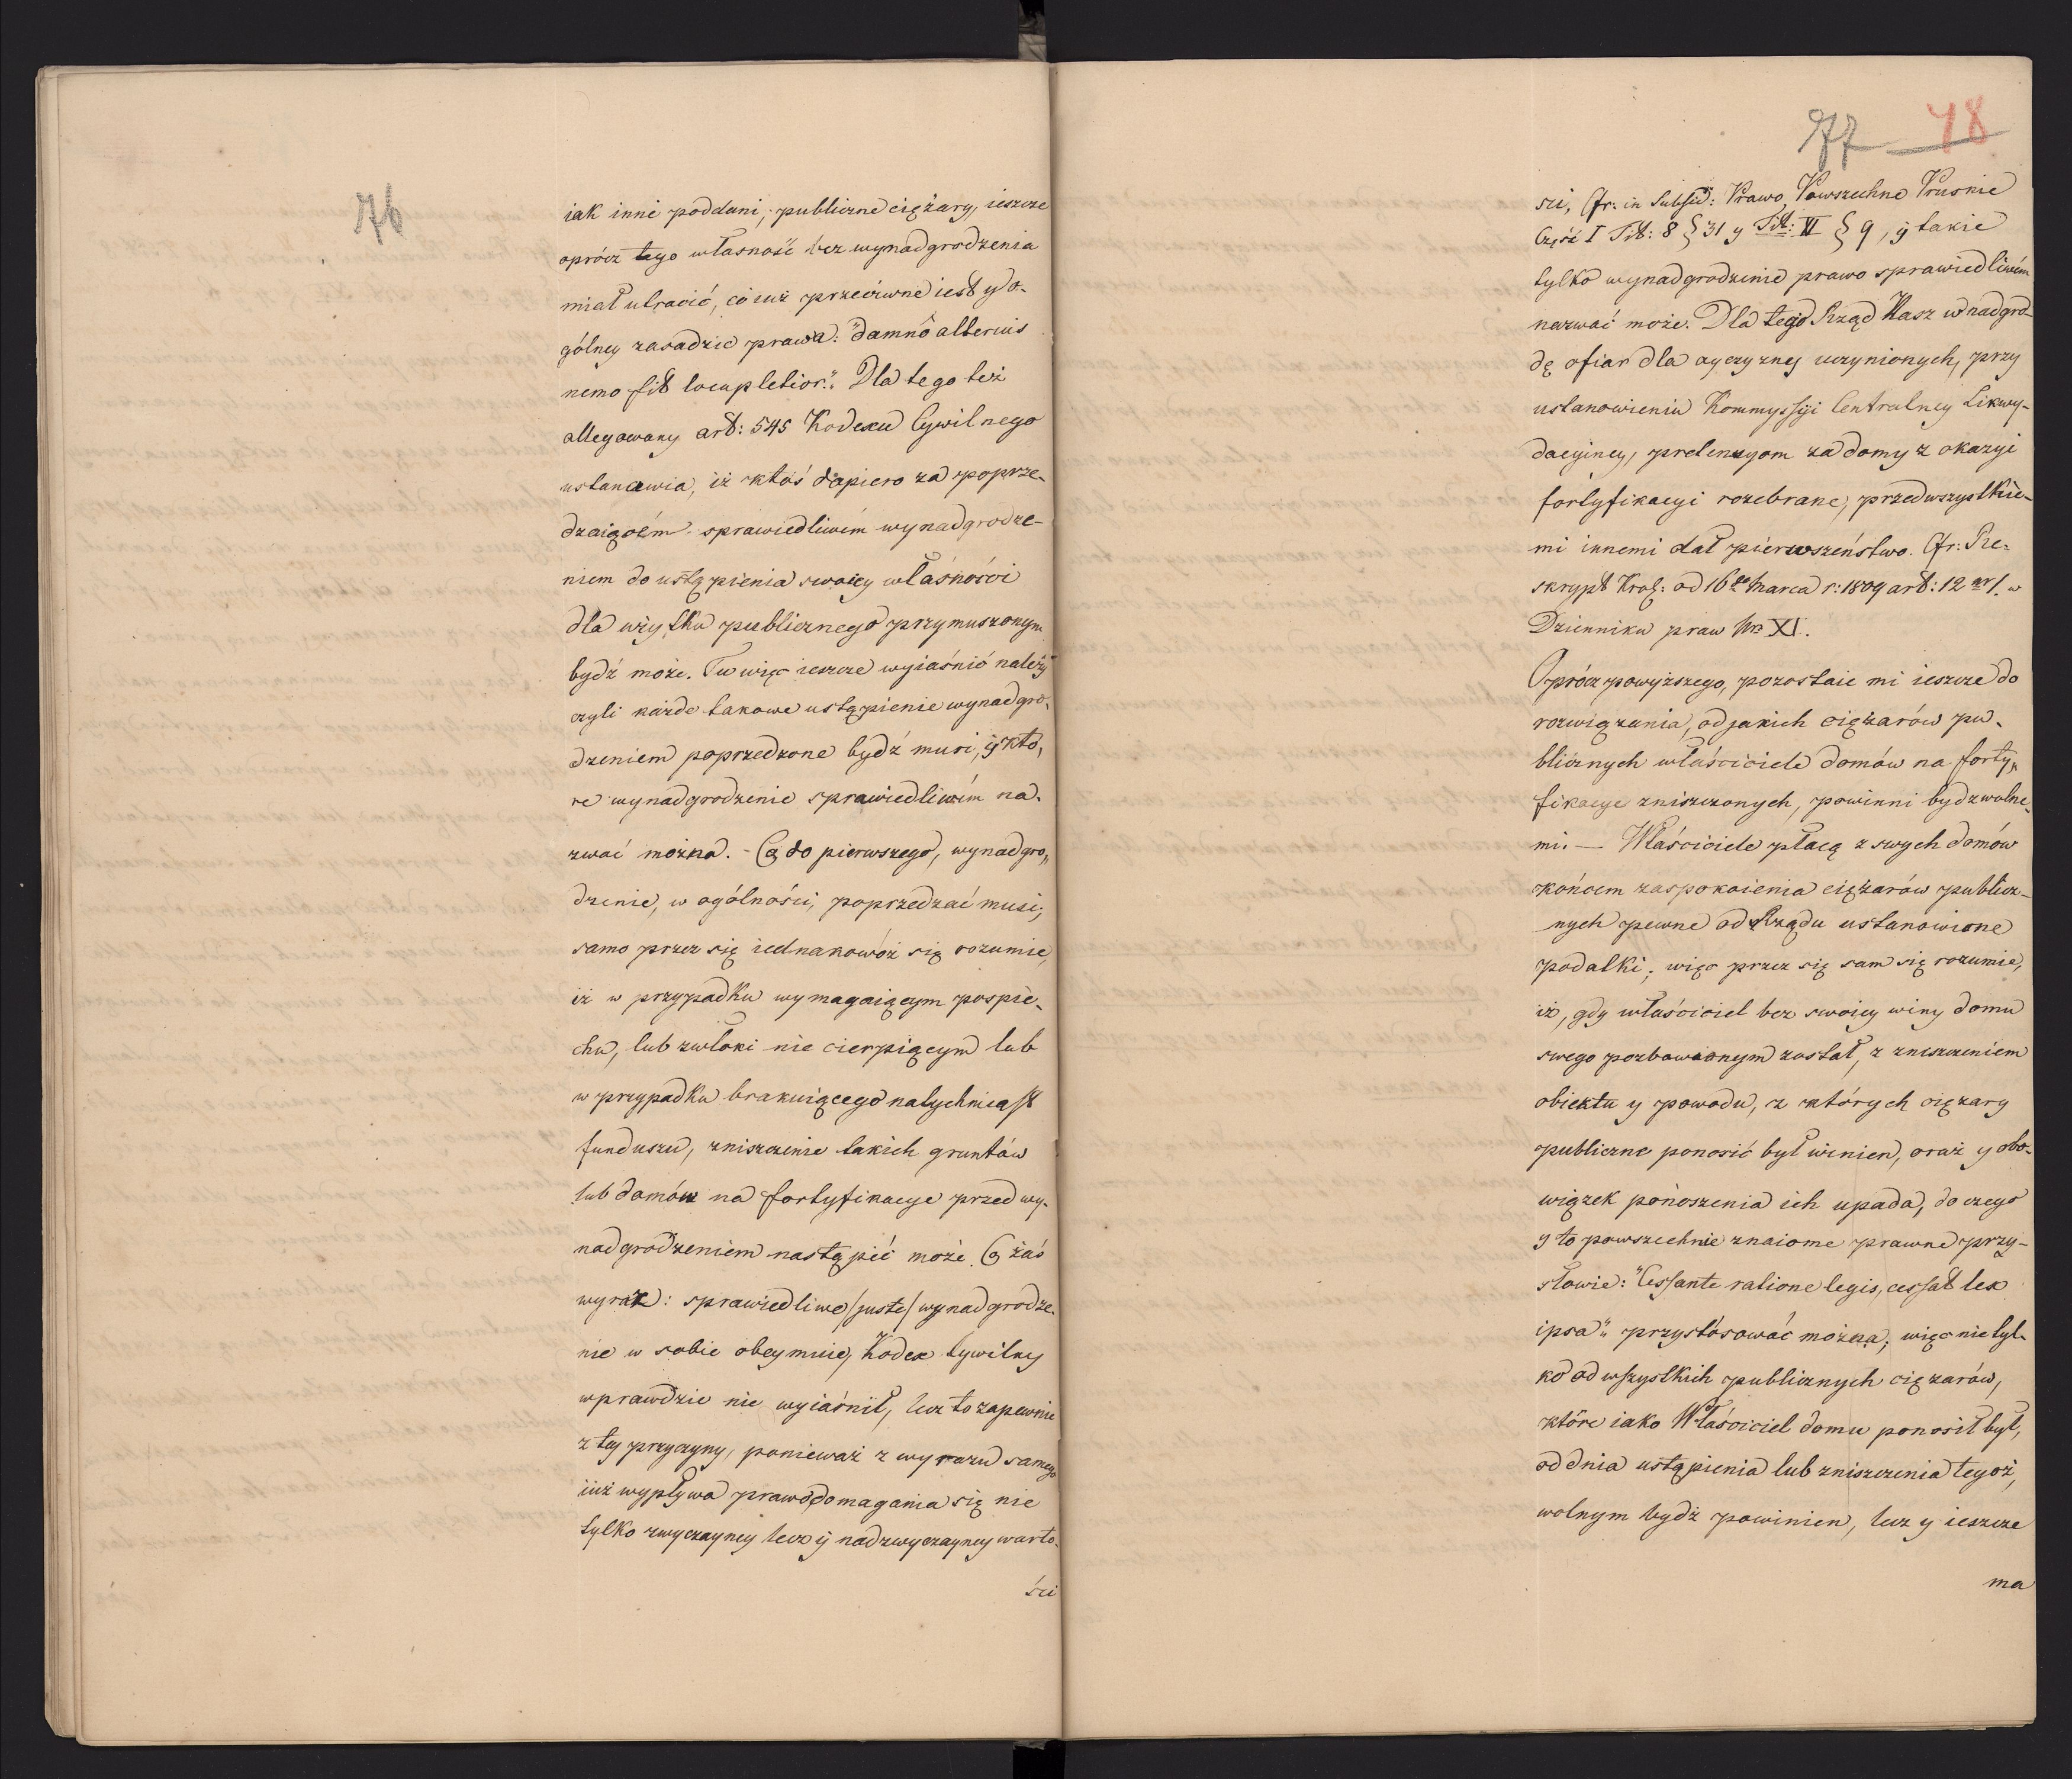 76
iak inni poddani, publiczne ciężary, ieszcze
oprócz tego własność bez wynadgrodzenia
miał utracić, co iuż przeciwne iest y o-
gólney zasadzie prawa: "damnô alterius
nemo fit locupletior". Dla tego też
allegowany art: 545 Kodexu Cywilnego
ustanawia, iż ktoś dopiero za poprze-
dzaiącém sprawiedliwém wynadgrodze-
niem do ustąpienia swoiey własności
dla użytku publicznego przymuszonym
bydź może. Tu więc ieszcze wyiaśnić należy
czyli każde takowe ustąpienie wynadgro-
dzeniem poprzedzone bydź musi, ÿ któ-
re wynadgrodzenie sprawiedliwém na-
zwać można. - Co do pierwszego, wynadgro-
dzenie, w ogólności, poprzedzać musi,
samo przez się iednakowóż się rozumie,
iż w przypadku wymagaiącym pospie-
chu, lub zwłoki nie cierpiącym lub
w przypadku brakuiącego natychmiast
funduszu, zniszczenie takich gruntów
lub domów na fortyfikacye przed wy-
nadgrodzeniem nastąpić może. Co zaś
wyraz: sprawiedliwe /juste/ wynadgrodze-
nie w sobie obeymuie, Kodex Cywilny
wprawdzie nie wyiaśnił, lecz to zapewnie
z tey przyczyny, ponieważ z wyrazu samego
iuż wypływa prawo domagania się nie
tylko zwyczayney lecz ÿ nadzwyczayney warto-
ści
77 78
sci, Cfr: in Subsid: Prawo Powszechne Pruskie
Część I Tit: 8 § 31 y Tit: XI § 9, ÿ takie
tylko wynadgrodzenie prawo sprawiedliwém
nazwać może. Dla tego Rząd Nasz w nadgro-
dę ofiar dla oyczyzney uczynionych, przy
ustanowieniu Kommyssyi Centralney Likwy-
dacyiney, pretensyom za domy z okazyi
fortyfikacyi rozebrane, przed wszystkie-
mi innemi dał pierwszeństwo. Cfr: Re-
skrypt Król: od 16go Marca r: 1809 art: 12 nr 1. w
Dzienniku praw Nro XI.
Oprócz powyższego, pozostaie mi ieszcze do
rozwiązania, od jakich ciężarów pu-
blicznych właściciele domów na forty-
fikacye zniszczonych, powinni bydź wolne-
mi. — Właściciele płacą z swych domów
końcem zaspokoienia ciężarów publicz-
nych pewne od Rządu ustanowione
podatki, więc przez się sam się rozumie,
iż, gdy właściciel bez swoiey winy domu
swego pozbawionym został, z zniszczeniem
obiektu y powodu, z których ciężary
publiczne ponosić był winien, oraz y obo-
wiązek ponoszenia ich upada, do czego
y to powszechnie znaiome prawne przy-
słowie: "Cessante ratione legis, cessat lex
ipsa" przystósować można; więc nie tyl-
ko od wszystkich publicznych ciężarów,
które iako Właściciel domu ponosił był,
od dnia ustąpienia lub zniszczenia tegoż,
wolnym bydź powinien, lecz y ieszcze
ma